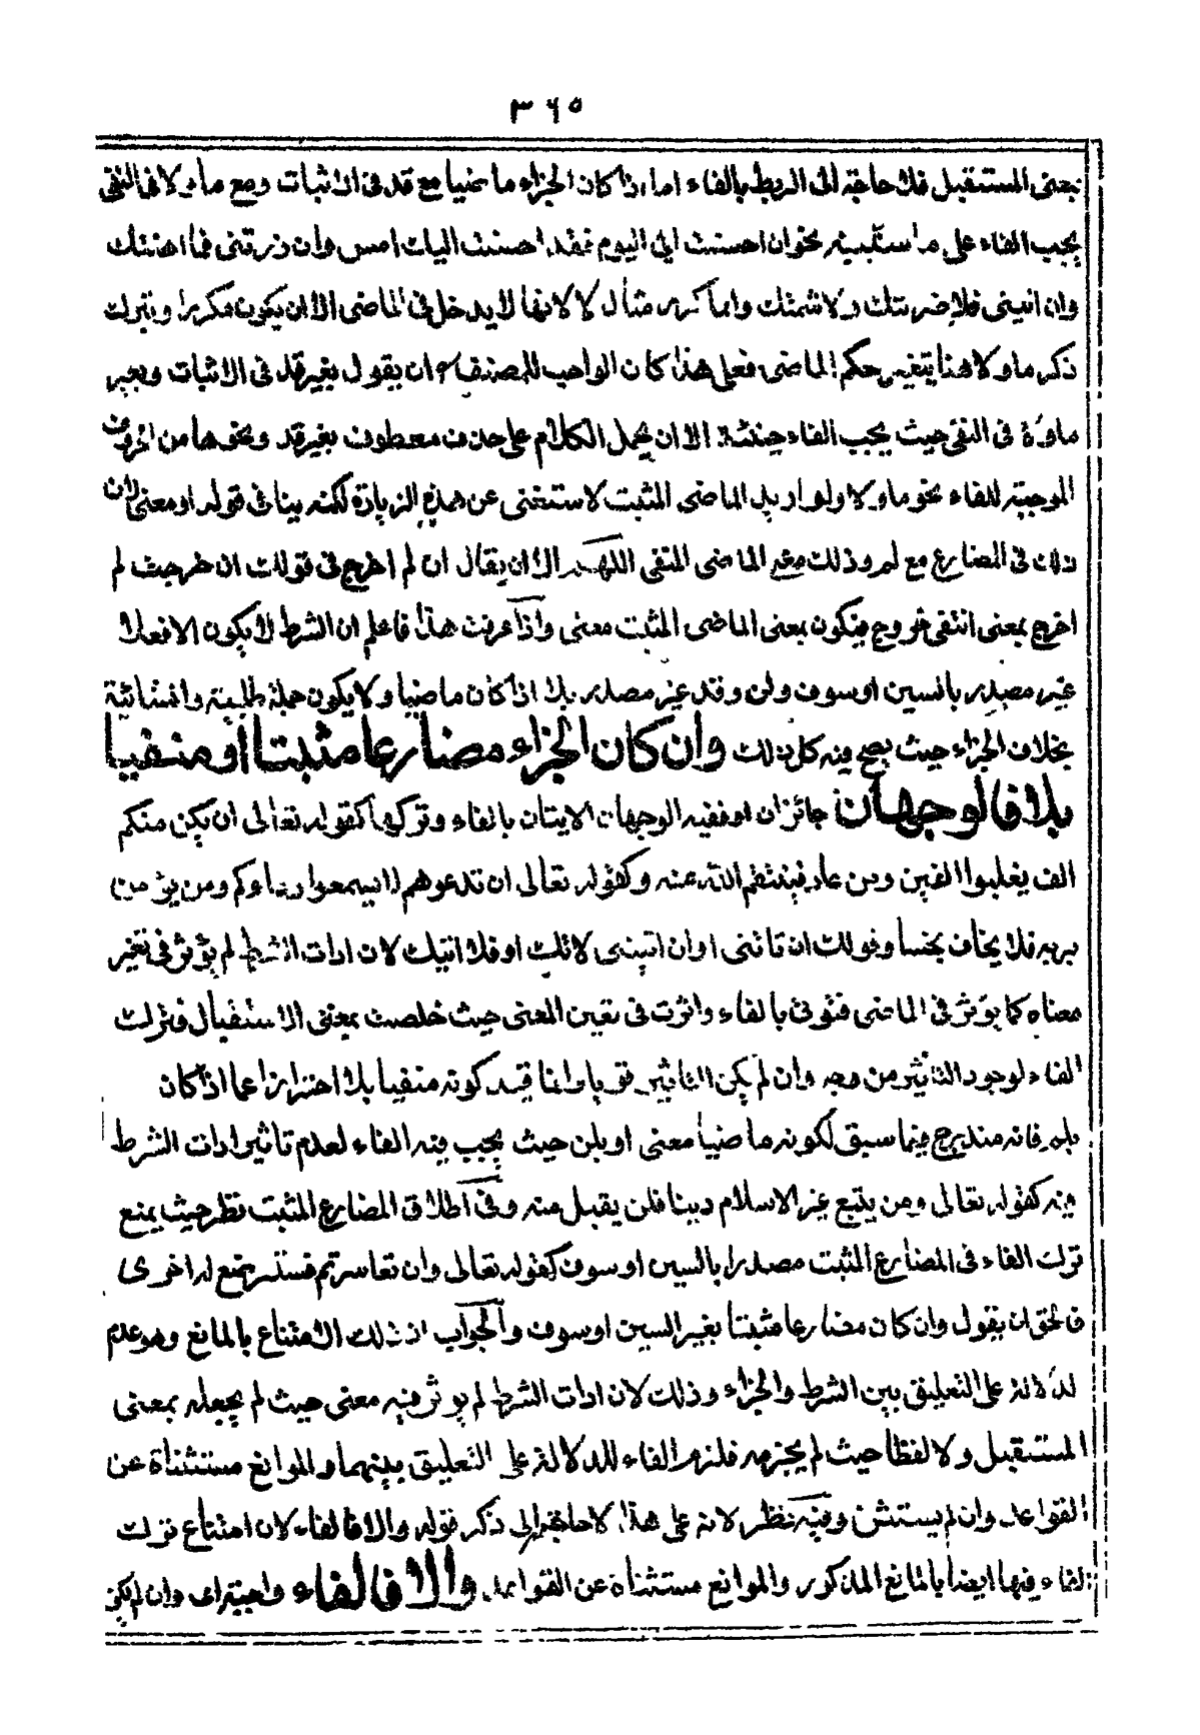 ٣٦٥
بمعنى المستقبل فلا حاجة الى الربط بالفاء اما اذا كان الجزاء ماضيا مع قد فى الاثبات ومع ما ولا فى النفى
يجب الفاء على ما سنبينه نحو ان احسنت الى اليوم فقد احسنت اليك امس وان زرتنى فما اهنتك
وان اتيتنى فلا ضربتك ولا شتمتك وانما كرر مثال لا لانها لا يدخل فى الماضى الا ان يكون مكررا وبترك
ذكر ما ولا هنا يتغير حكم الماضى فعلى هذا كان الواجب للمصنف ان يقول بغير قد فى الاثبات وبغير
ما ولا فى النفى حيث يجب الفاء حينئذ الا ان يحمل الكلام على حذف معطوف بغير قد ونحوها من الحروف
الموجبة للفاء نحو ما ولا ولو اريد الماضى المثبت لاستغنى عن هذه الزيادة لكنه ينافى قوله او معنى لان
ذلك فى المضارع مع لم وذلك معنى الماضى المنفى اللهم الا ان يقال ان لم اخرج فى قولك ان خرجت لم
اخرج بمعنى انتفى خروجى فيكون بمعنى الماضى المثبت معنى واذا عرفت هذا فاعلم ان الشرط لا يكون الا فعلا
غير مصدر بالسين او سوف ولن وقد غير مصدر بلا اذا كان ماضيا ولا يكون جملة طلبية وانشائية
بخلاف الجزاء حيث يصح فيه كل ذلك وان كان الجزاء مضارعا مثبتا او منفيا
بلا فالوجهان جائزان او ففيه الوجهان الايتان بالفاء وتركها كقوله تعالى ان يكن منكم
الف يغلبوا الفين ومن عاد فينتقم الله منه وكقوله تعالى ان تدعوهم لا يسمعوا دعاءكم ومن يؤمن
بربه فلا يخاف بخسا وقولك ان تاتنى او ان اتيتنى لاتك او فلا اتيك لان ادات الشرط لم يؤثر فى تغير
معناه كما يؤثر فى الماضى فتؤتى بالفاء واثرت فى تعين المعنى حيث خلصت بمعنى الاستقبال فتركت
الفاء لوجود التاثير من وجه وان لم يكن التاثير قويا وانما قيد كونه منفيا بلا احترازا عما اذا كان
بلم فانه مندرج فيما سبق لكونه ماضيا معنى او بلن حيث يجب فيه الفاء لعدم تاثير ادات الشرط
فيه كقوله تعالى ومن يتبع غير الاسلام دينا فلن يقبل منه وفى اطلاق المضارع المثبت نظر حيث يمنع
ترك الفاء فى المضارع المثبت مصدرا بالسين او سوف كقوله تعالى وان تعاسرتم فسترضع له اخرى
فالحق ان يقول وان كان مضارعا مثبتا بغير السين او سوف والجواب ان ذلك الامتناع بالمانع وهو عدم
الدلالة على التعليق بين الشرط والجزاء وذلك لان ادات الشرط لم يوثر فيه معنى حيث لم يجعله بمعنى
المستقبل ولا لفظا حيث لم يجزمه فلزم الفاء للدلالة على التعليق بينهما والموانع مستثناة عن
القواعد وان لم يستثن وفيه نظر لانه على هذا لا حاجة الى ذكر قوله والا فالفاء لان امتناع ترك
الفاء فيها ايضا بالمانع المذكور والموانع مستثناة عن القواعد والا فالفاء واجبة اى وان لم يكن